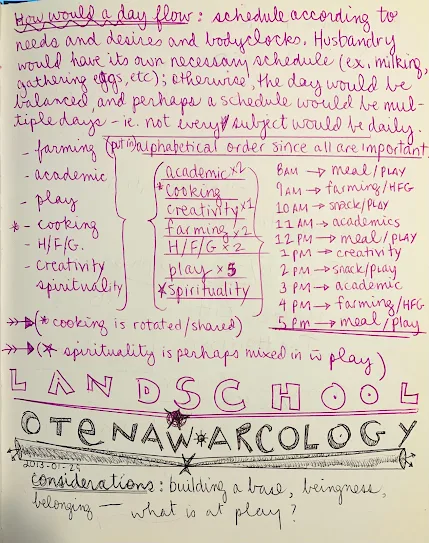 How would a day flow: schedule according to
needs and desires and bodyclocks. Husbandry
would have its own necessary schedule (ex. milking,
gathering eggs, etc); otherwise, the day would be
balanced, and perhaps a schedule would be mul-
tiple days - ie. not every subject would be daily.
(put in) alphabetical order since all are important
- farming
- academic
- play
* - cooking
- H/F/G.
- creativity
spirituality
academic x2
* cooking
creativity x1
farming x2
H/F/G x2
play x5
* spirituality
8 AM → meal/PLAY
9 AM → farming/HFG
10 AM → snack/PLAY
11 AM → academics
12 PM → meal/PLAY
1 PM → creativity
2 PM → snack/play
3 PM → academic
4 PM → farming/HFG
5 PM → meal/play
(* cooking is rotated/shared)
(* spirituality is perhaps mixed in w play)
LANDSCHOOL
OTENAW*ARCOLOGY
considerations: building a base, beingness,
belonging — what is at play?